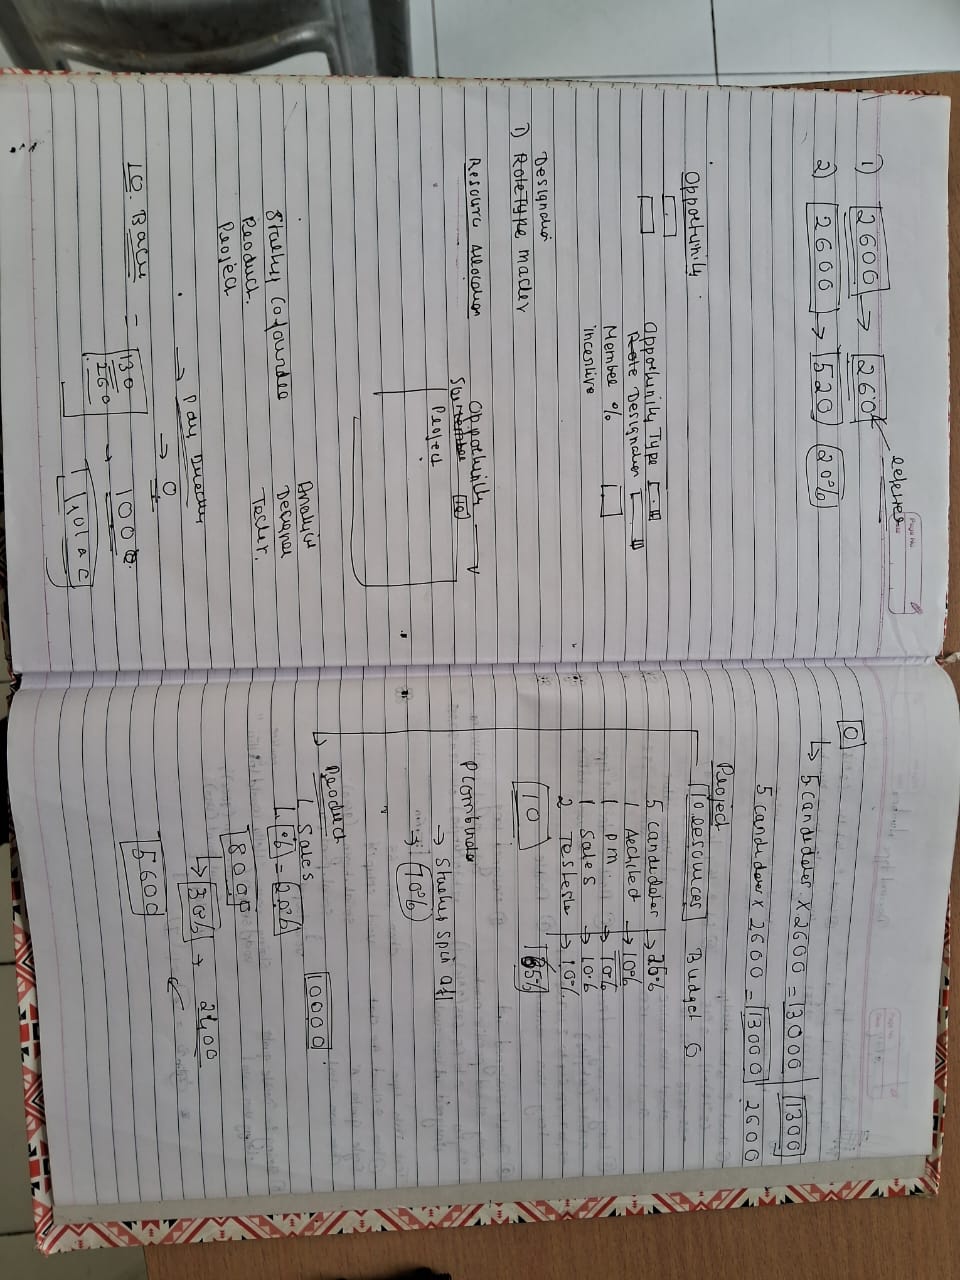 Page No
referrer
1) 2600 → 260
2) 2600 → 520 20%
Opportunity
Opportunity Type
Role Designation
Member %
incentive
Designation
1) Role Type master
Resource Allocation
Opportunity
10
Project
Startup Cofounder
Product.
Project
Analyst
Designer
Tester.
→ Pay Directly
→ 0
10. Batch = 130
260 → 1000
10 lac
0
↳ 5 candidates × 2600 = 13000 1300
5 candidates × 2600 = 13000 2600
Project
10 resources Budget
5 candidates → 25%
1 Architect → 10%
1 PM → 10%
1 Sales → 10%
2 Tester → 10%
10 65%
→ Startup Spin off
→ 70%
Product
↳ Sales 10000
↳ % = 20%
8000
↳ 30% → 2400
5600